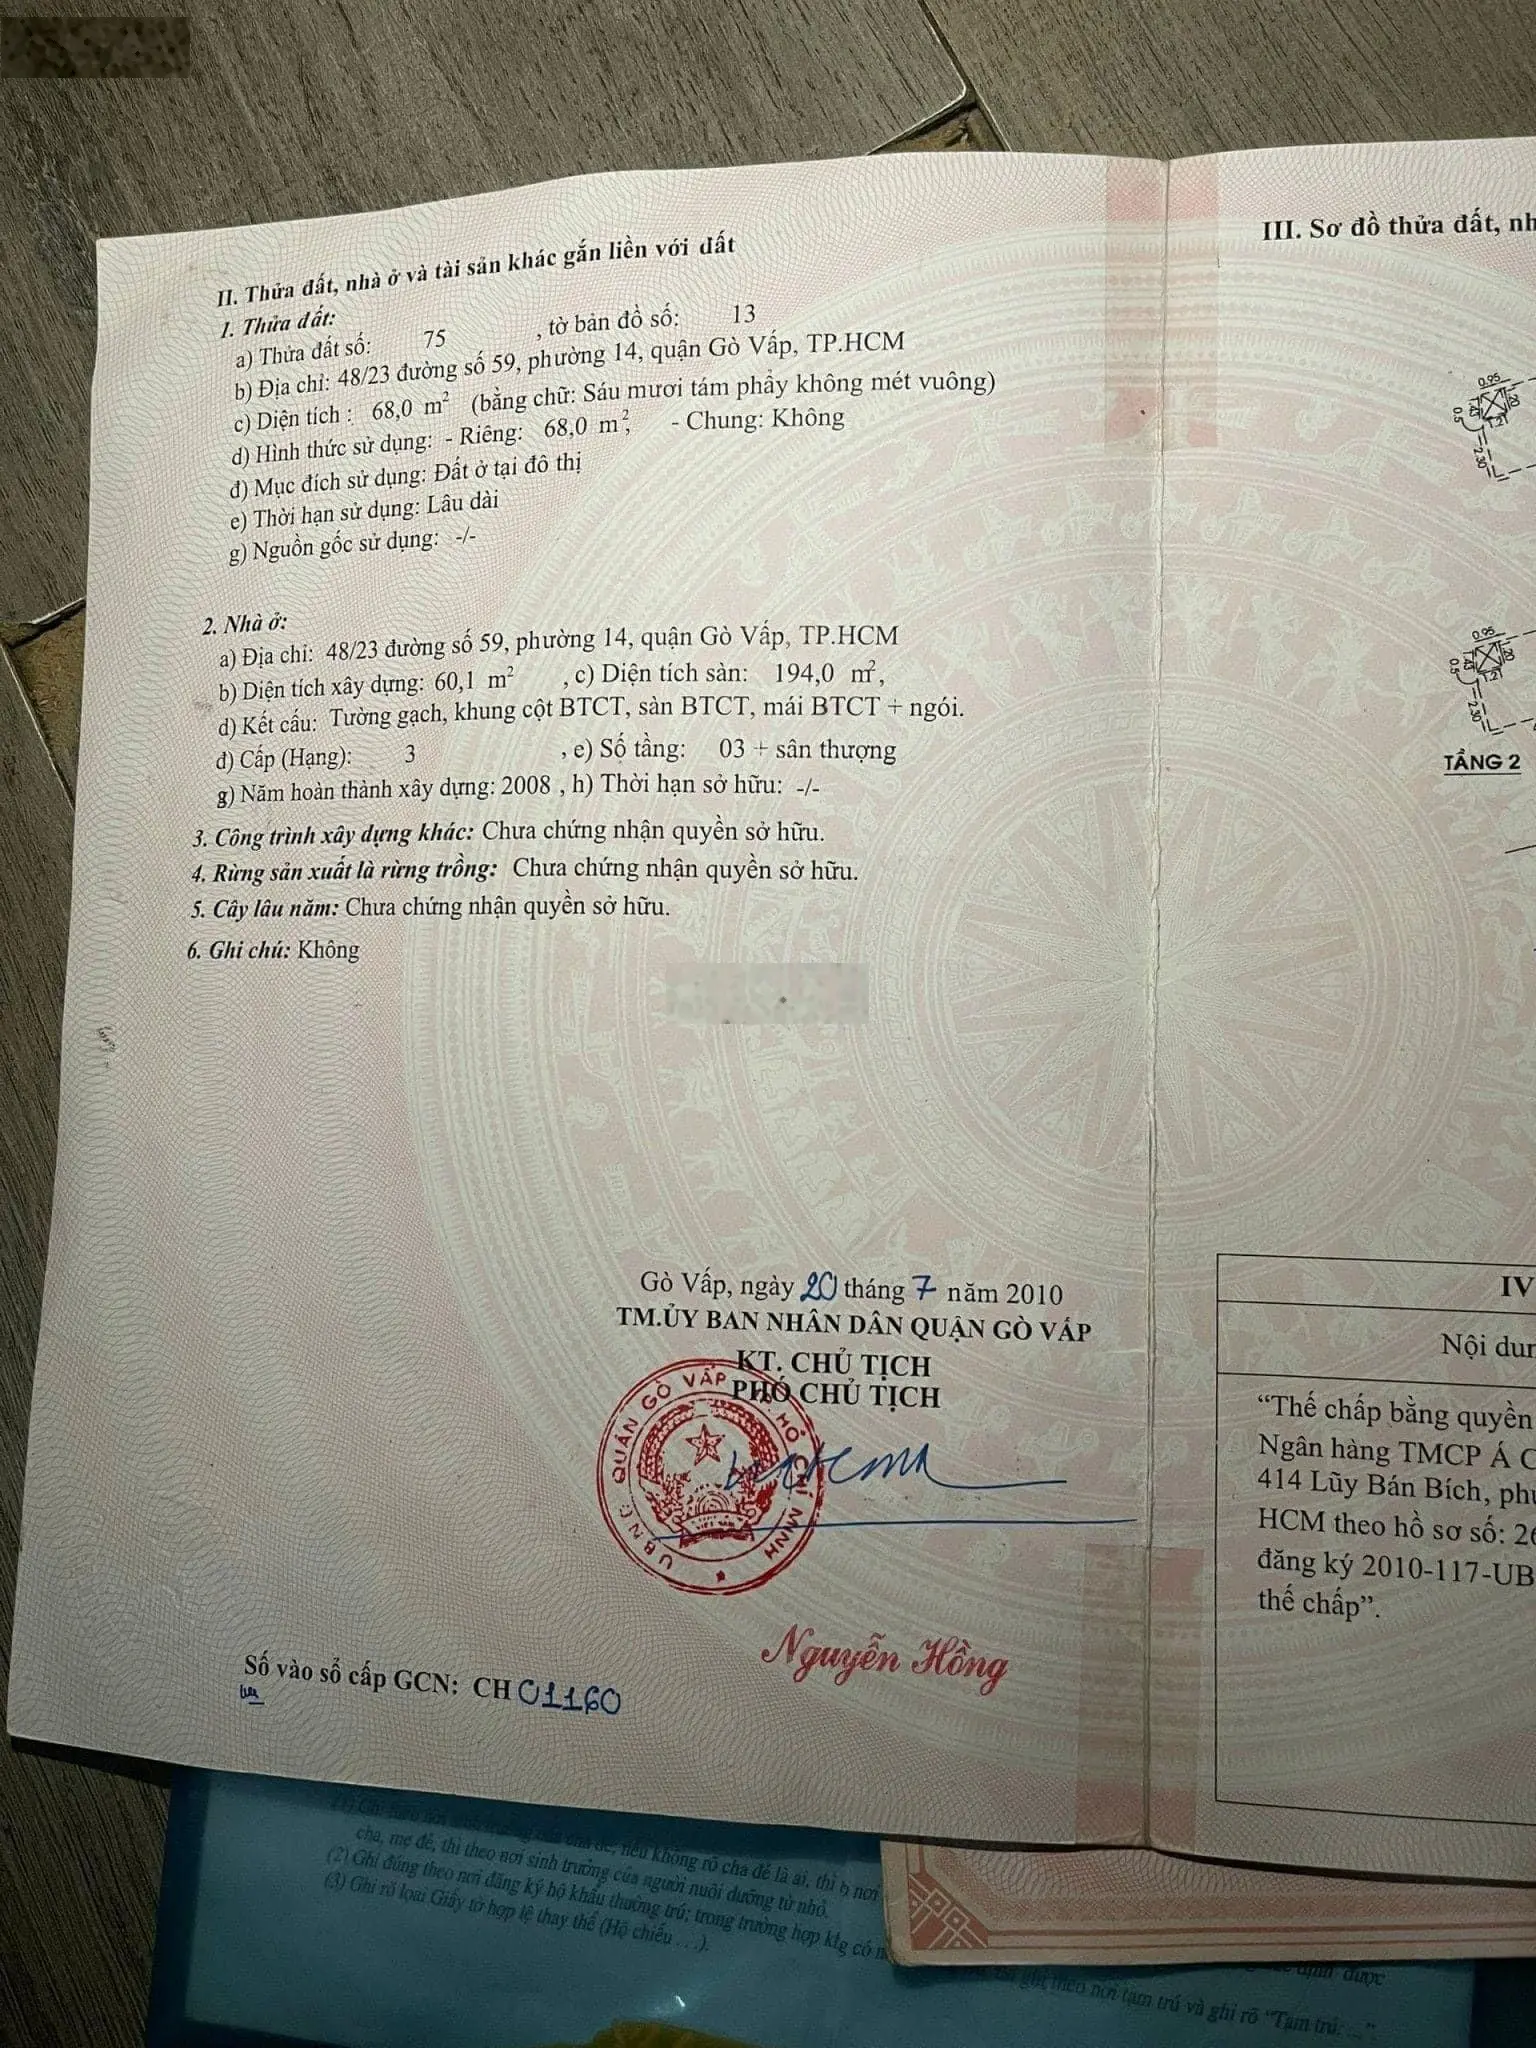 II. Thửa đất, nhà ở và tài sản khác gắn liền với đất
1. Thửa đất:
a) Thửa đất số: 75 , tờ bản đồ số: 13
b) Địa chỉ: 48/23 đường số 59, phường 14, quận Gò Vấp, TP.HCM
c) Diện tích : 68,0 m² (bằng chữ: Sáu mươi tám phẩy không mét vuông)
d) Hình thức sử dụng: - Riêng: 68,0 m², - Chung: Không
đ) Mục đích sử dụng: Đất ở tại đô thị
e) Thời hạn sử dụng: Lâu dài
g) Nguồn gốc sử dụng: -/-
2. Nhà ở:
a) Địa chỉ: 48/23 đường số 59, phường 14, quận Gò Vấp, TP.HCM
b) Diện tích xây dựng: 60,1 m² , c) Diện tích sàn: 194,0 m²,
d) Kết cấu: Tường gạch, khung cột BTCT, sàn BTCT, mái BTCT + ngói.
đ) Cấp (Hạng): 3 , e) Số tầng: 03 + sân thượng
g) Năm hoàn thành xây dựng: 2008 , h) Thời hạn sở hữu: -/-
3. Công trình xây dựng khác: Chưa chứng nhận quyền sở hữu.
4. Rừng sản xuất là rừng trồng: Chưa chứng nhận quyền sở hữu.
5. Cây lâu năm: Chưa chứng nhận quyền sở hữu.
6. Ghi chú: Không
Gò Vấp, ngày 20 tháng 7 năm 2010
TM.ỦY BAN NHÂN DÂN QUẬN GÒ VẤP
KT. CHỦ TỊCH
PHÓ CHỦ TỊCH
U.B.N.D QUẬN GÒ VẤP T.P HỒ CHÍ MINH
VIỆT NAM
Nguyễn Hồng
Số vào sổ cấp GCN: CH 01160
III. Sơ đồ thửa đất, nh
0.95
1.43
1.20
0.5
1.21
2.30
0.95
1.43
1.20
0.5
1.21
2.30
TẦNG 2
IV
Nội dun
“Thế chấp bằng quyền
Ngân hàng TMCP Á C
414 Lũy Bán Bích, phư
HCM theo hồ sơ số: 26
đăng ký 2010-117-UB
thế chấp”.
cha, mẹ đẻ, thì theo nơi sinh trưởng của người nuôi dưỡng từ nhỏ.
(2) Ghi đúng theo nơi đăng ký hộ khẩu thường trú; trong trường hợp
(3) Ghi rõ loại Giấy tờ hợp lệ thay thế (Hộ chiếu . . .).
được
ghi theo nơi tạm trú và ghi rõ “Tạm trú: ...”.